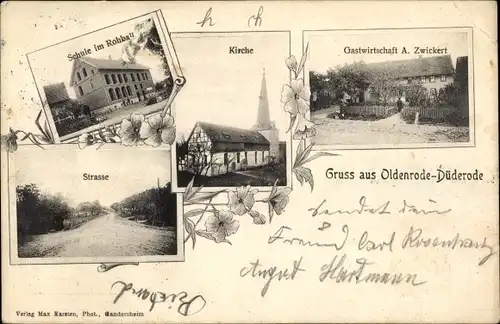 Schule im Rohbau
Kirche
Gastwirtschaft A. Zwickert
Strasse
Gruss aus Oldenrode-Düderode
sendet dein
Freund Carl Rosenkranz
August Hartmann
Richard
Verlag Max Karsten, Phot., Gandersheim